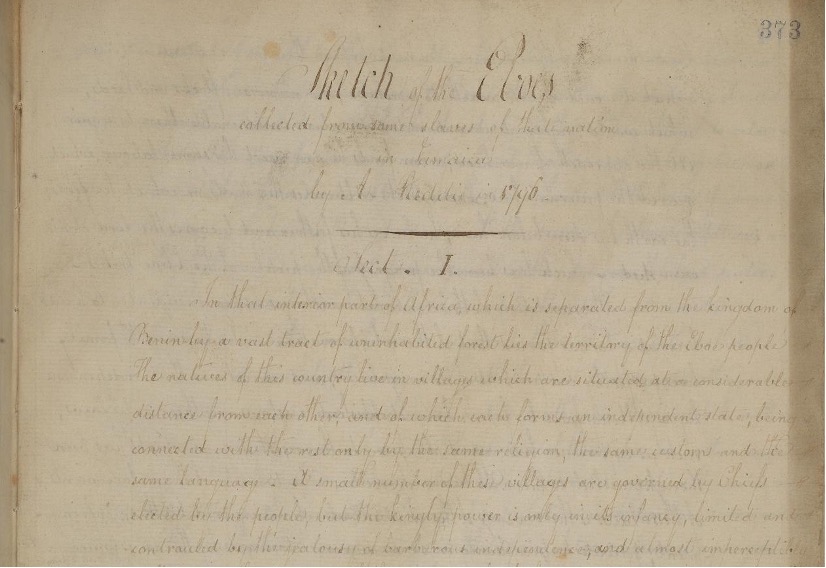 373
Sketch of the Eboes
collected from some slaves of that nation
in Jamaica
by A. in 1796
Sect. I.
In that interior part of Africa, which is separated from the kingdom of
Benin by a vast tract of uninhabited forest lies the territory of the Eboe people
The natives of this country live in villages which are situated at a considerable
distance from each other, and of which each forms an independent state, being
connected with the rest only by the same religion, the same customs and the
same language. A small number of these villages are governed by chiefs
elected by the people, but the kingly power is only in its infancy, limited and
controuled by the jealousy of barbarous independence, and almost imperceptibly